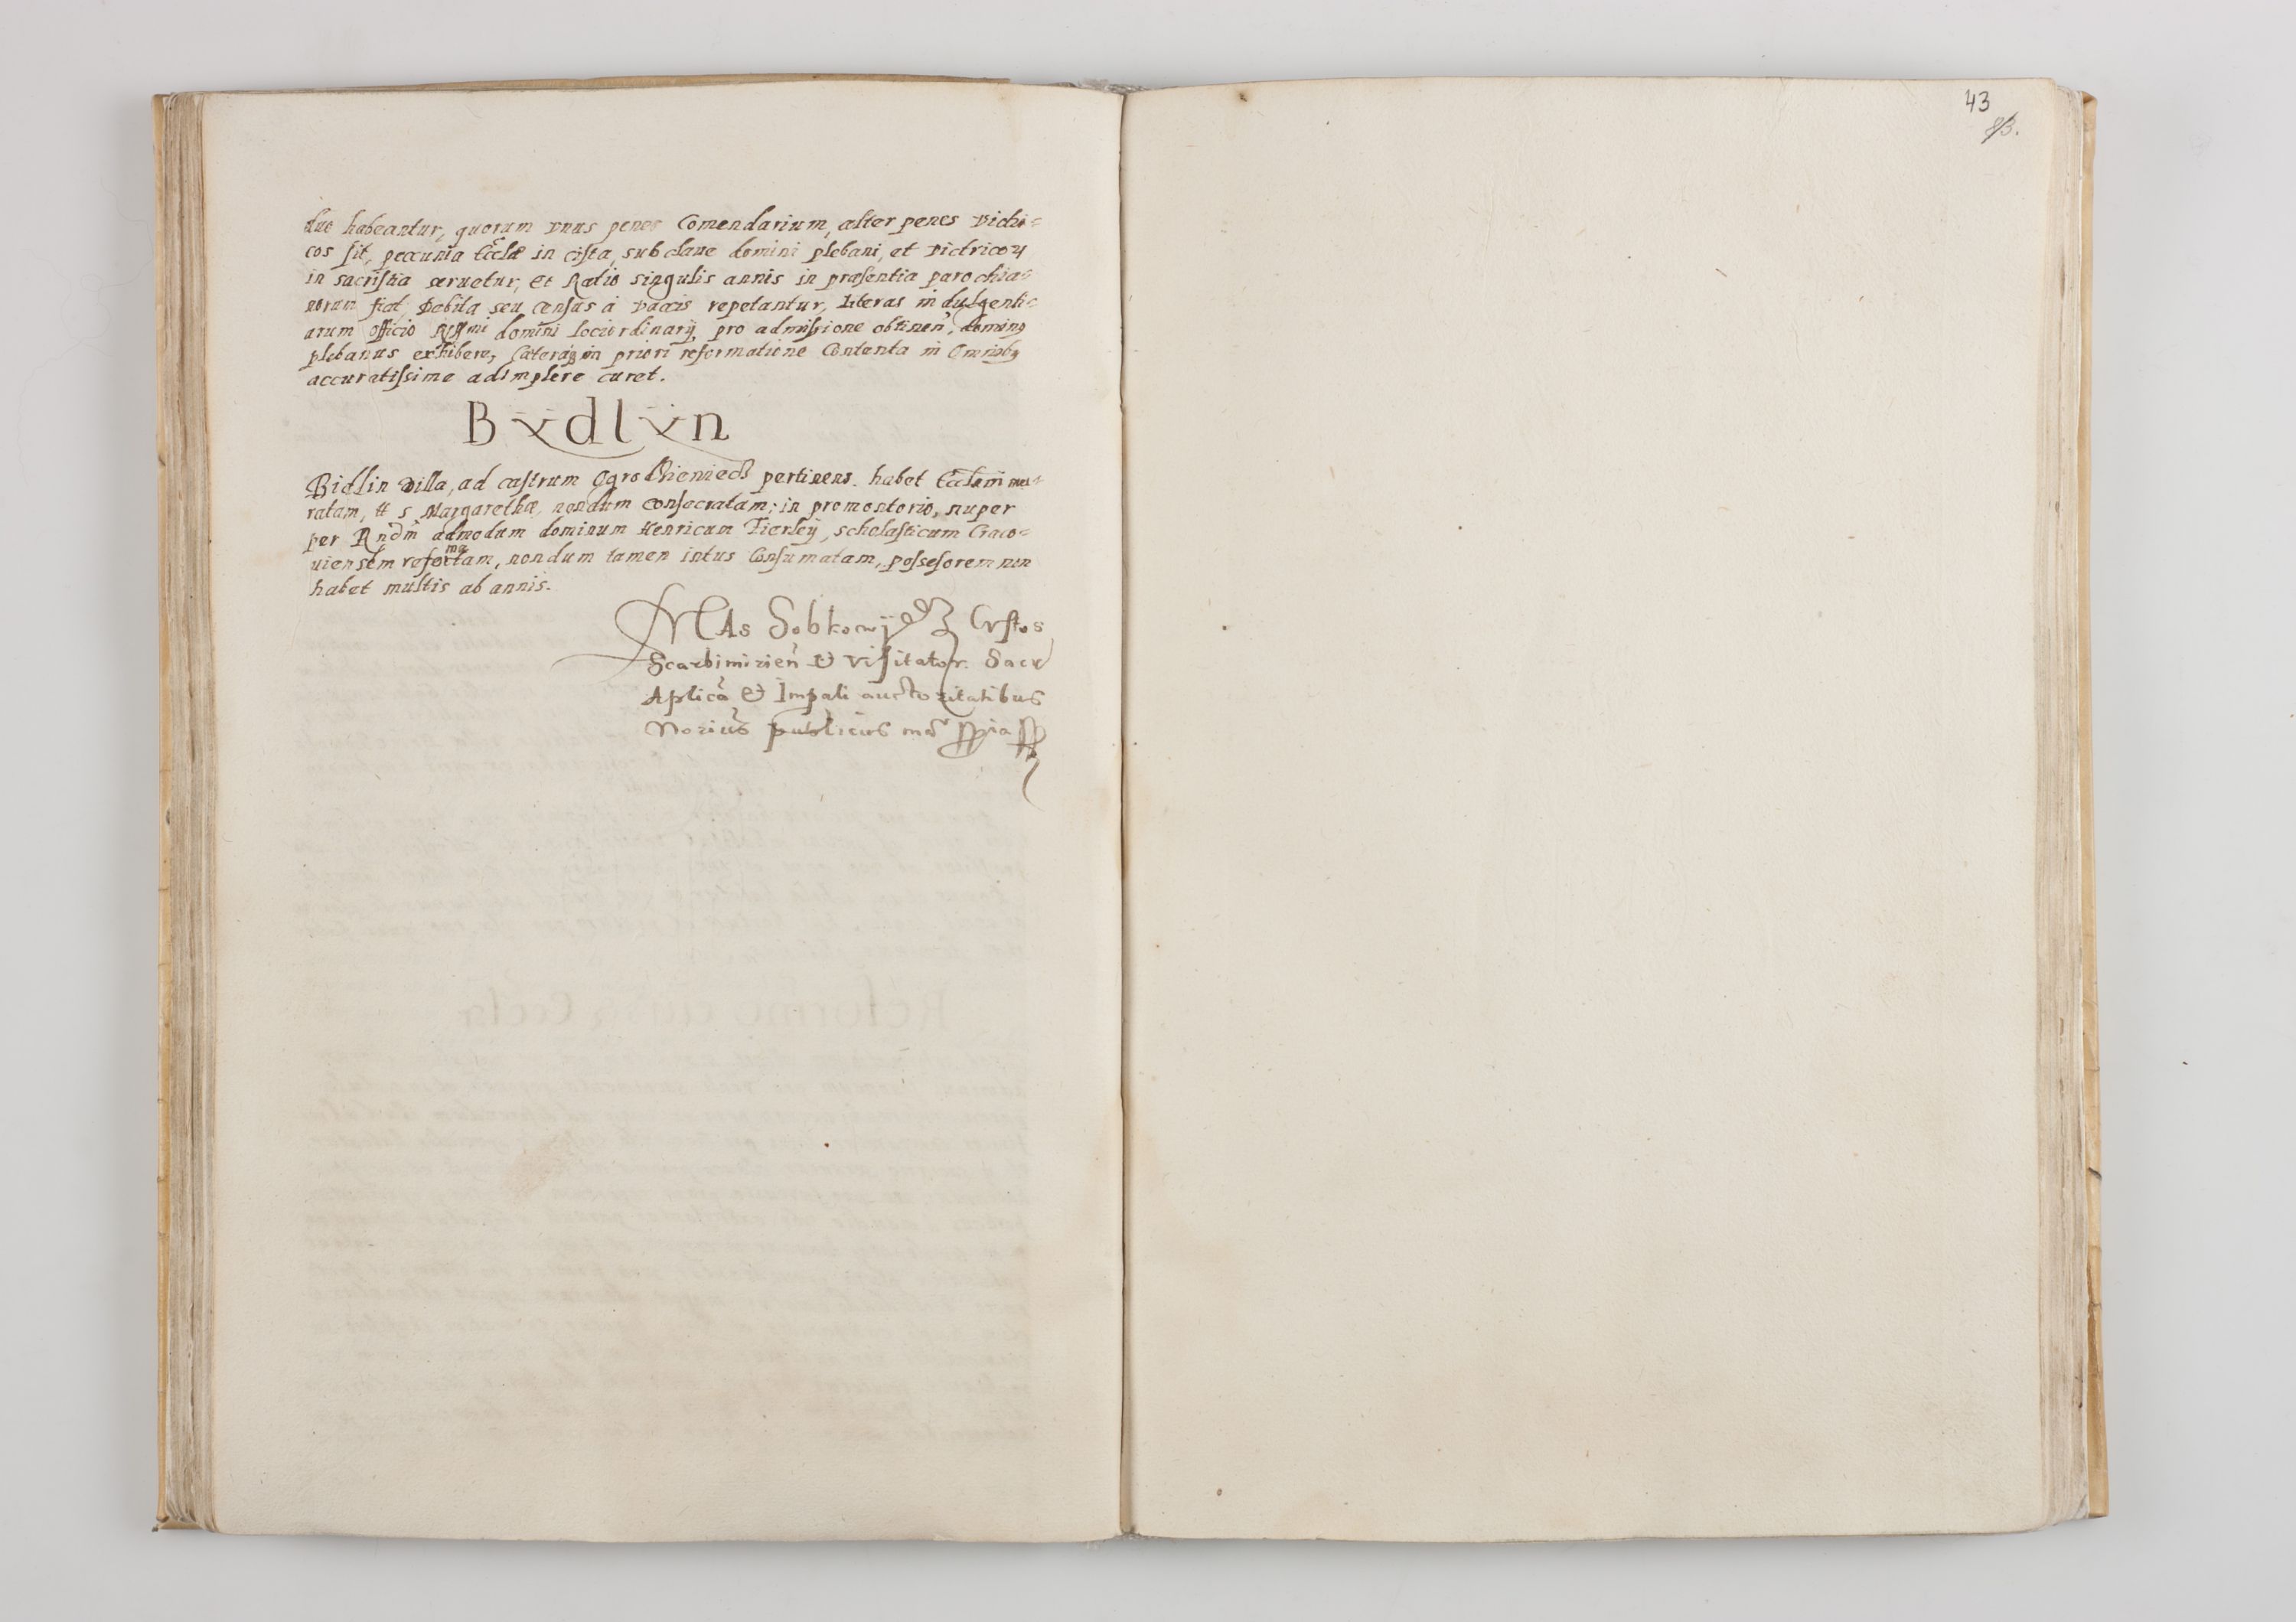 duo habeantur, quorum vnus penes Comendarium, alter penes Victri=
cos sit, peccunia Eccłæ in cista, sub claue domini plebani, et victricoꝝ
in sacristia seruetur, et Ratio singulis annis in præsentia parochia=
norum fiat, Debita seu census à Paccis repetantur, literas indulgenti=
arum officio Rssmi domini lociordinarij, pro admissione obtinen̄, dominꝰ
plebanus exhibere, Cæteraqꝫ in priori reformatione Contenta in Omnibꝰ
accuratissime adimplere curet.
Bydlyn
Bidlin villa, ad castrum Ogrodzieniecz pertinens. habet Ecclam mu=
ratam, tt S Margarethæ, nondum consecratam; in promontorio, nuper
per Rndm̄ admodum dominum Henricum Fierleÿ, scholasticum Craco=
uiensem reformatam, nondum tamen intus Consumatam, possesorem non
habet multis ab annis.
Sobkowijcz Cvstos
Scarbimirien̄ et Visitator. Sacr
Aplica et Impali auctoritatibus
Norius publicus
43
83.